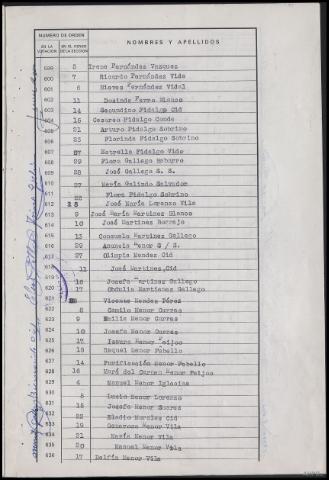 NUMERO DE ORDEN
EN LA VOTACION
EN EL CENSO DE LA SECCION
NOMBRES Y APELLIDOS
599 5 Irene Fernández Vazquez
600 7 Ricardo Fernández Vide
601 6 Nieves Fernández Vidal
602 11 Dosinda Ferro Blanco
603 14 Secundino Fidalgo Cid
604 16 Cesareo Fidalgo Conde
605 21 Arturo Fidalgo Sobrino
606 25 Florinda Fidalgo Sobrino
607 27 Estrella Fidalgo Vide
608 29 Flora Gallego
609 28 José Gallego S. S.
610 27 María Galindo Salvador
611 22 Flora Fidalgo Sobrino
612 28 José María Lorenzo Vila
613 9 José María Martinez Blanco
614 10 José Martinez Borrajo
615 13 Consuelo Martinez Gallego
616 29 Asuncia Menor S / S.
617 27 Olimpia Mendez Cid
618 11 José Martinez, Cid
619 16 Josefa Martinez Gallego
620 17 Obdulia Martinez Gallego
621 Vicenta Mendez Pérez
622 8 Camilo Menor Corras
623 9 Emilia Menor Corras
624 10 Josefa Menor Corras
625 17 Isaura Menor Feijoo
626 18 Raquel Menor Pobello
627 14 Purificación Menor Pobello
628 16 Mará del Carmen Menor Feijoo
629 4 Manuel Menor Iglesias
630 8 Lucio Menor Lorenzo
631 16 Josefa Menor Suarez
632 22 Eladio Morales Cid
633 19 Generosa Menor Vila
634 21 María Menor Vila
635 20 Manuel Menor Vila
636 17 Delfin Menor Vila